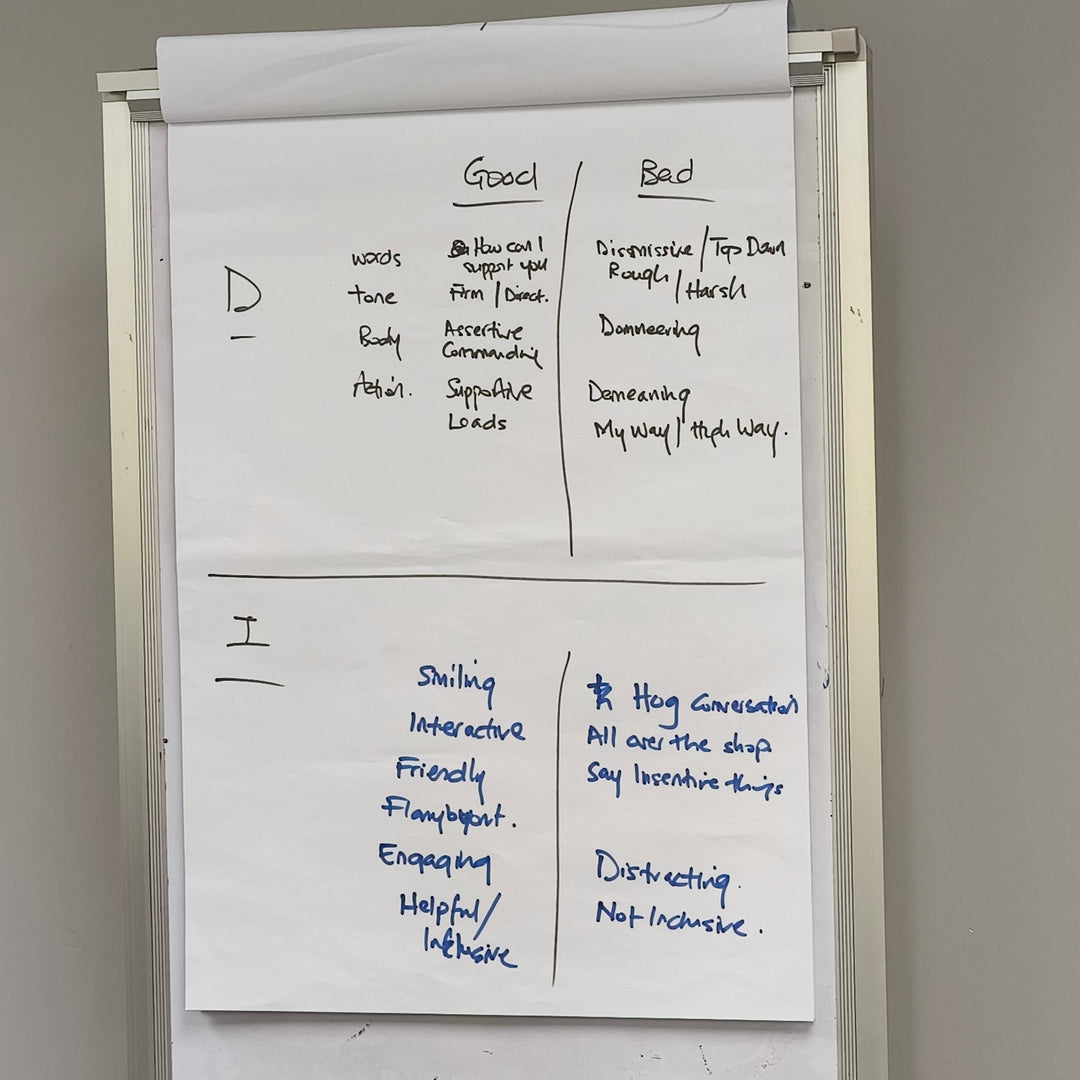 Good Bad
D
words How can I support you Dismissive / Top Down
Rough / Harsh
tone Firm / Direct.
Body Assertive Commanding Domneering
Action. Supportive Demeaning
Loads My Way / High Way.
I
Smiling Hog Conversation
Interactive All over the shop
Friendly Say Insentive things
Flamyboyont.
Engaging Distracting.
Helpful / Not Inclusive.
Inclusive